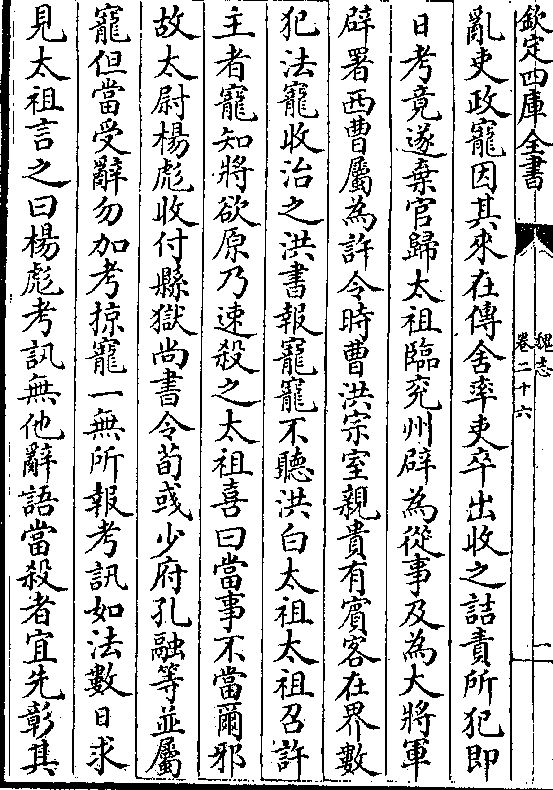 欽定四庫全書
魏志
卷二十六
二
亂吏政寵因其來在傳舍率吏卒出收之詰責所犯即
日考竟遂棄官歸太祖臨兖州辟為從事及為大將軍
辟署西曹屬為許令時曹洪宗室親貴有賓客在界數
犯法寵收治之洪書報寵寵不聽洪白太祖太祖召許
主者寵知將欲原乃速殺之太祖喜曰當事不當爾邪
故太尉楊彪收付縣獄尚書令荀彧少府孔融等並屬
寵但當受辭勿加考掠寵一無所報考訊如法數日求
見太祖言之曰楊彪考訊無他辭語當殺者宜先彰其